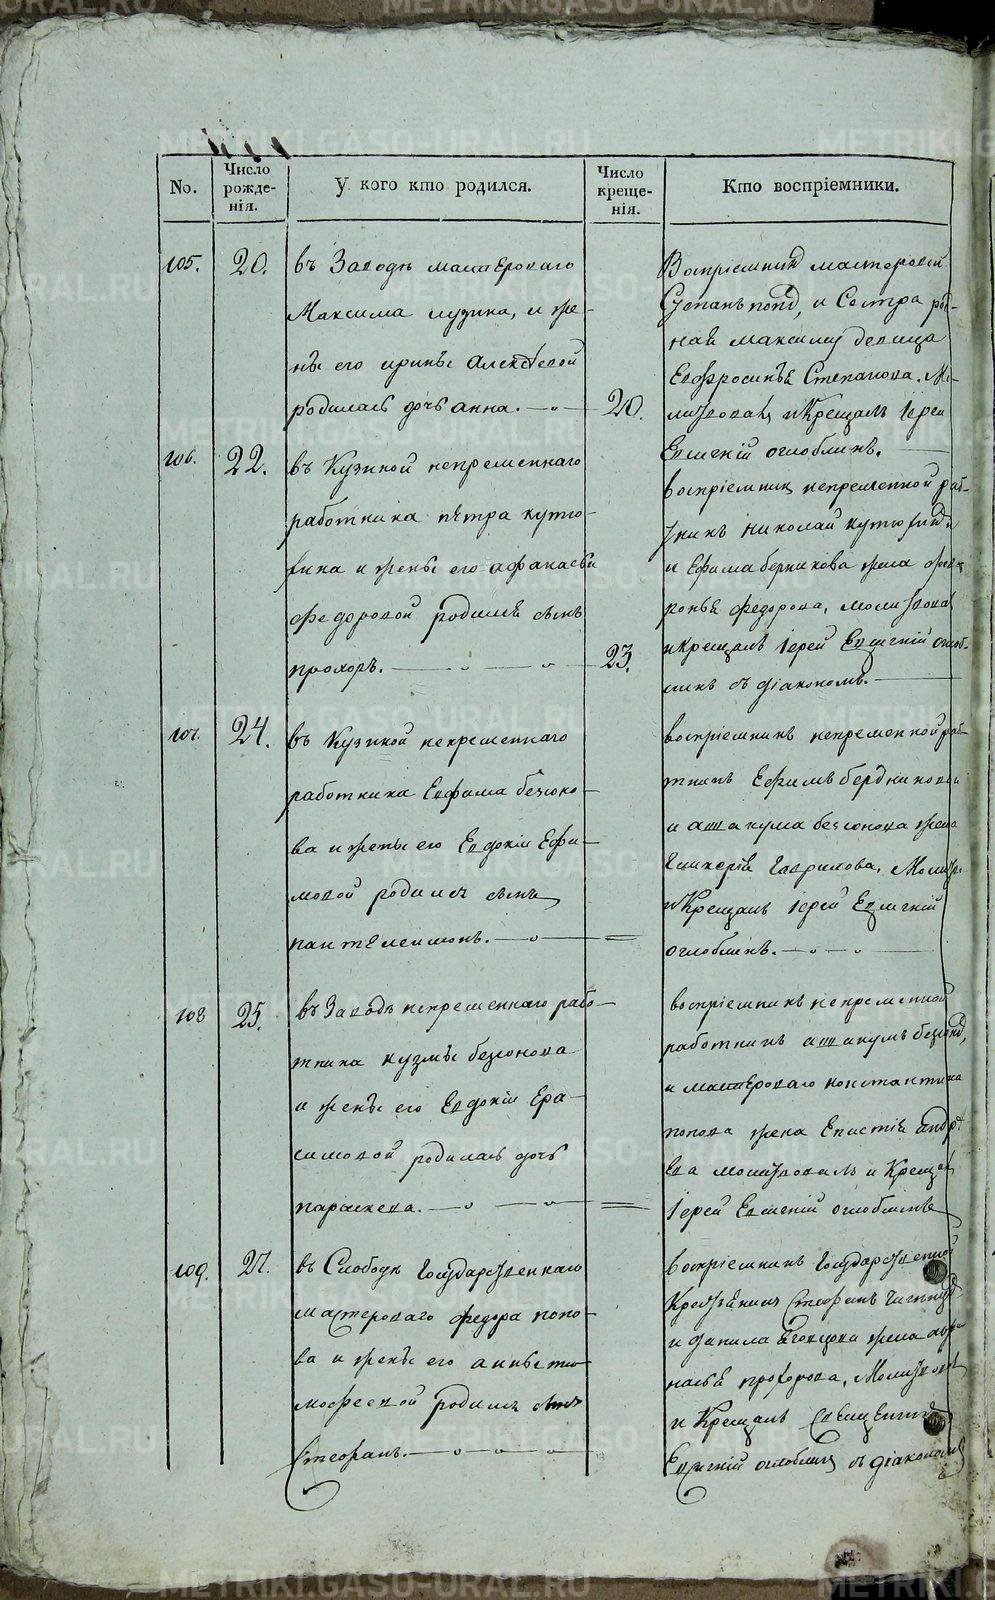 No.
Число рожде-
нія.
У кого кто родился.
Число креще-
нія.
Кто воспріемники.
105.
20.
въ Заводѣ мастероваго
Максима лузина, и же-
нѣ его иринѣ Алексѣевой
родилась дочь анна.
20.
Воспріемники мастеровой
Степанъ поповъ, и Сестра род-
ная максиму девица
Евфросинья Степанова. Мо-
литвовалъ и Крещалъ іерей
Евгеній оглоблинъ.
106.
22.
въ Кузиной непременнаго
работника пѣтра кутю-
хина и жены его афанасьи
федоровой родился сынъ
прохоръ.
23.
воспріемникъ непременной рабо-
тникъ николай кутюхинъ
и Ефима бердникова жена
федорова, молитвовалъ
и крещалъ іерей Евгеній оглоб-
линъ съ діакономъ.
107.
24.
въ Кузиной непременнаго
работника Евфима безсоно-
ва и жены его Евдокіи Ефи-
мовой родился сынъ
пантелеимонъ.
воспріемникъ непременной рабо-
тникъ Ефимъ бердниковъ
и аввакума безсонова жена
гликерія гаврилова. Молитв.
и Крещалъ іерей Евгеній
оглоблинъ.
108
25.
въ Заводѣ непременнаго рабо-
тника кузмы безсонова
и жены его Евдокіи Ера-
симовой родилась дочь
параскева.
воспріемникъ непременной
работникъ аввакумъ безсоновъ,
и мастероваго константина
попова жена Епистимія андрѣ-
ева молитвовалъ и Крещалъ
іерей Евгеній оглоблинъ
109.
27.
въ Слободѣ государственнаго
мастероваго федора попо-
ва и жены его анны ти-
мофеевой родился сынъ
Стефанъ.
воспріемникъ государственной
Крестьянинъ Стефанъ
и данила жена афа-
насья прохорова, Молитвовалъ
и Крещалъ священникъ
Евгеній оглоблинъ съ діакономъ
METRIKI.GASO-URAL.RU